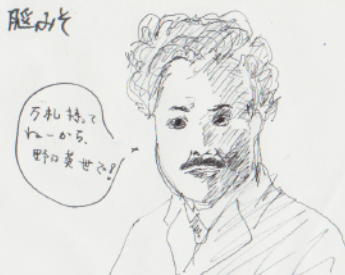 脳みそ
万札持って
ねーから、
野口英世で!